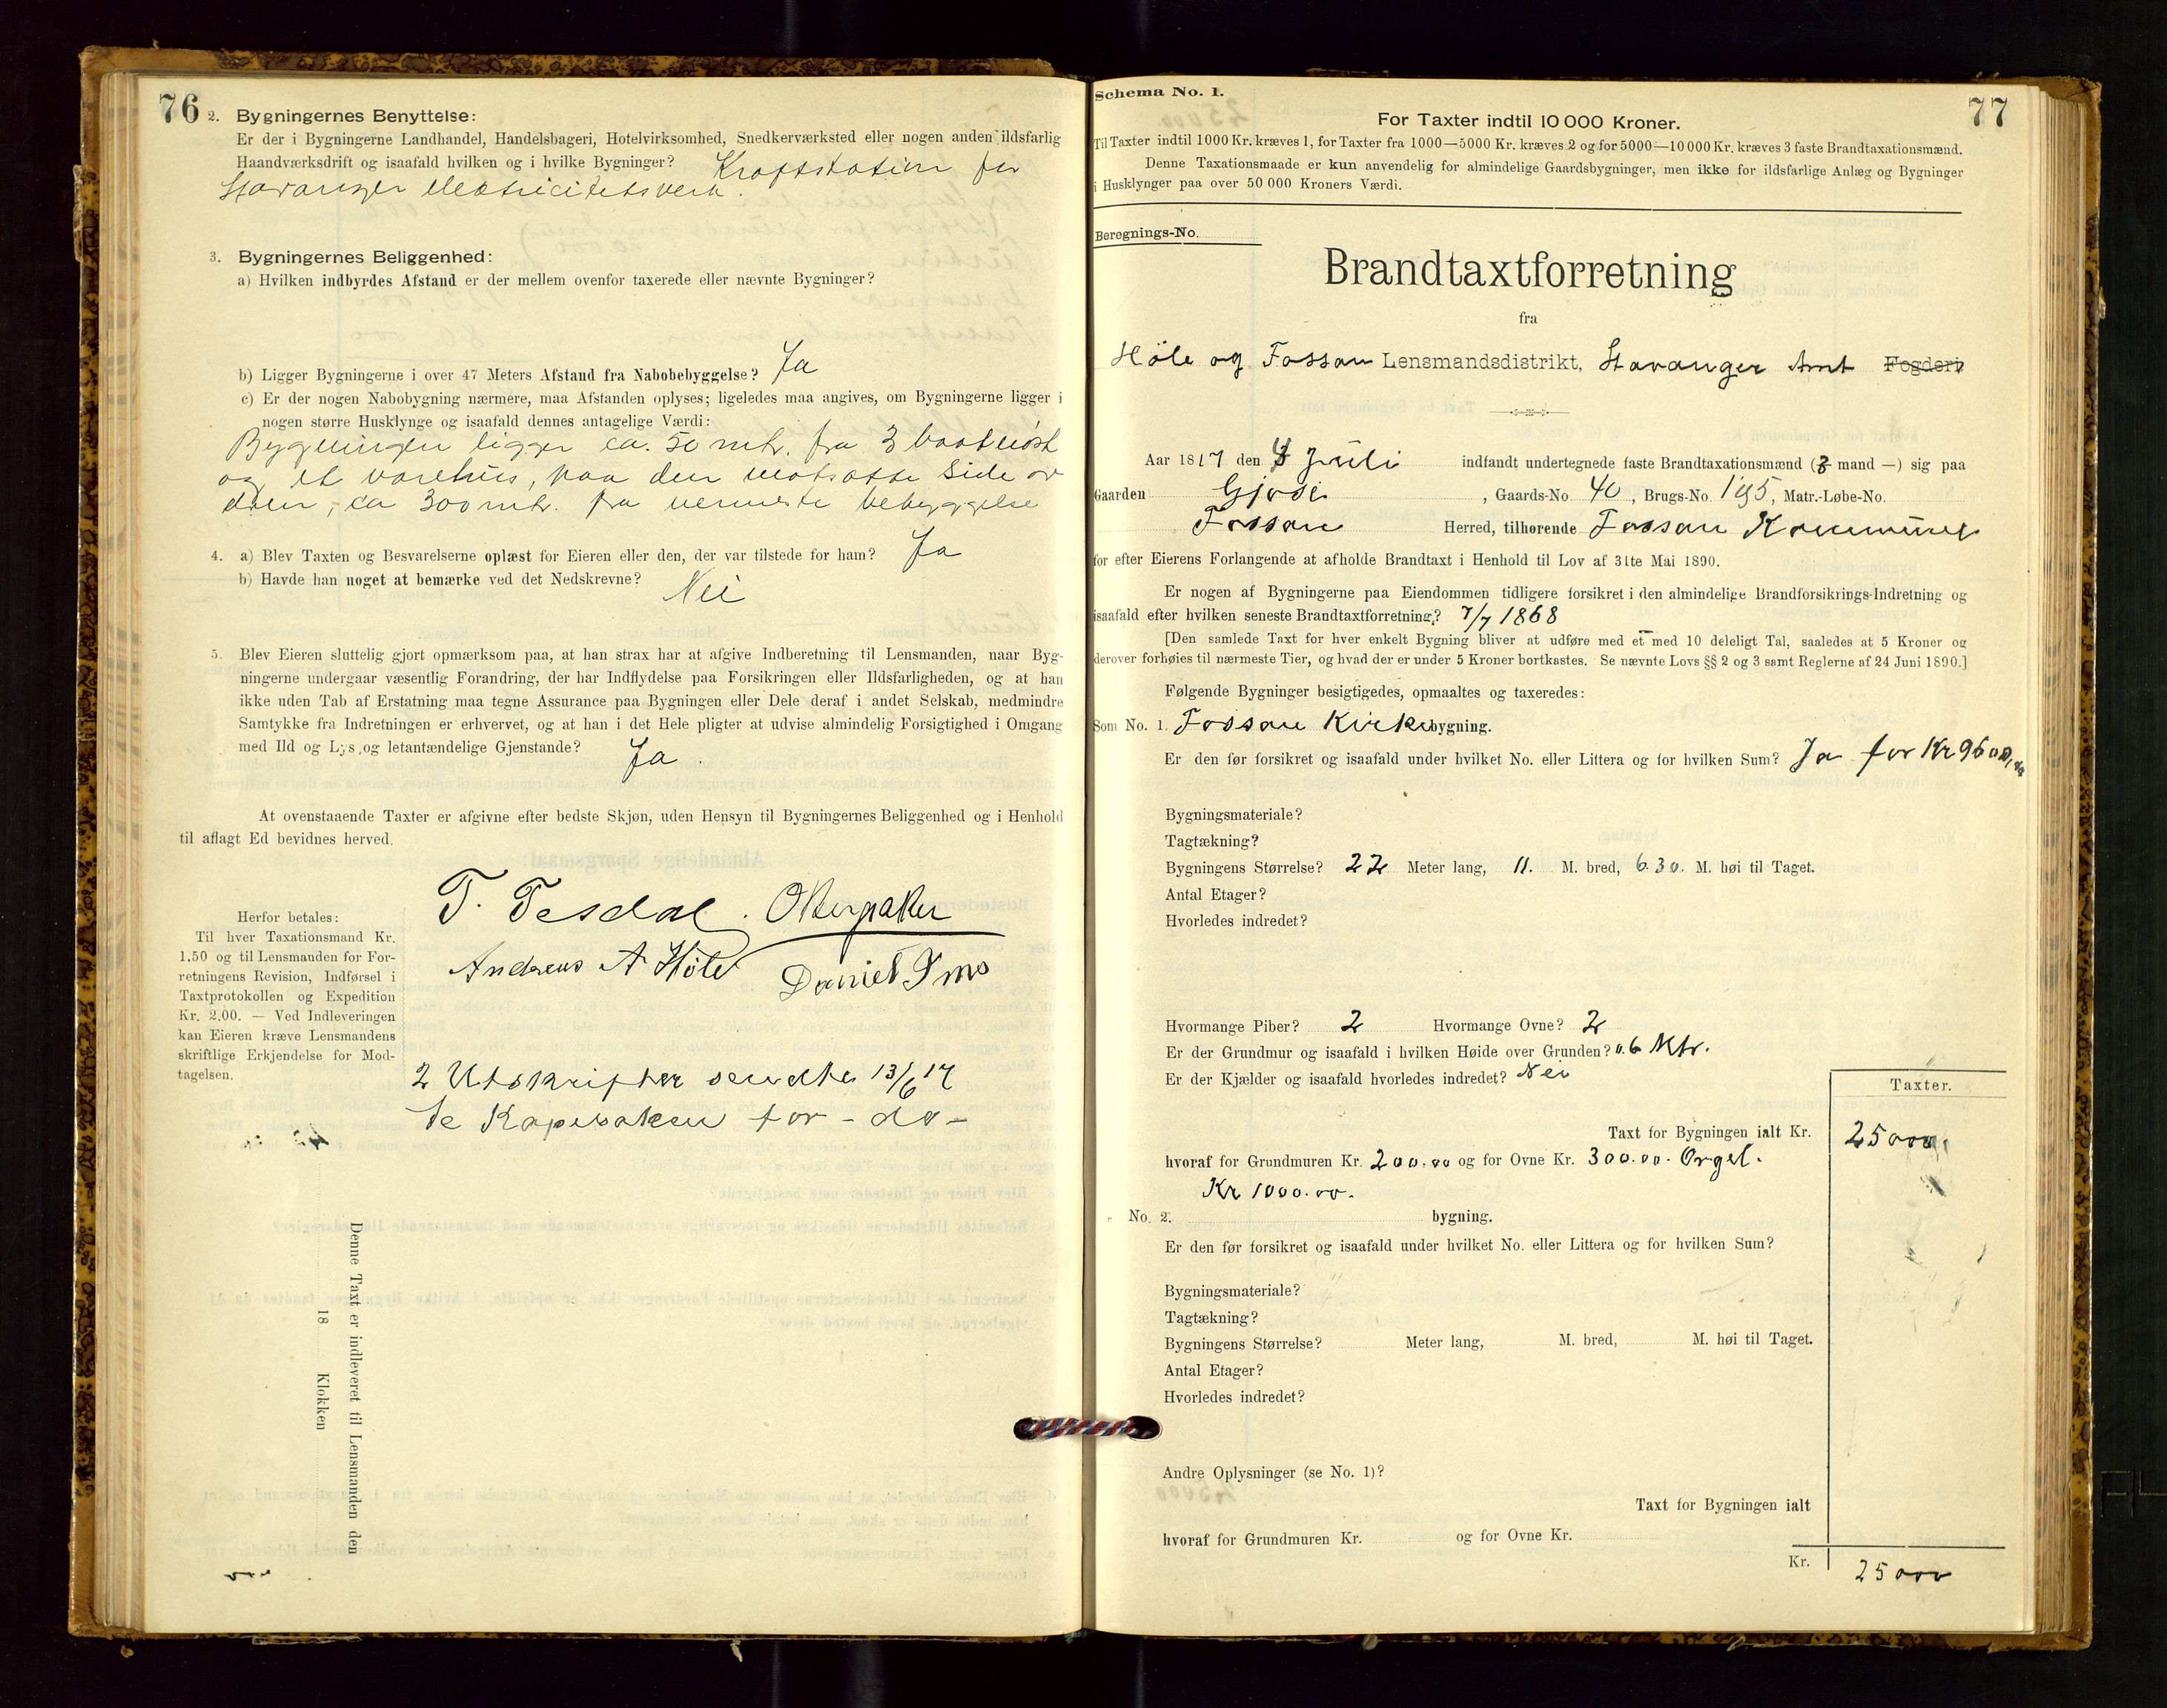 76
2. Bygningernes Benyttelse:
Er der i Bygningerne Landhandel, Handelsbageri, Hotelvirksomhed, Snedkerværksted eller nogen anden ildsfarlig
Haandværksdrift og isaafald hvilken og i hvilke Bygninger? Kraftstation for
Stavanger elektricitetsverk.
3. Bygningernes Beliggenhed:
a) Hvilken indbyrdes Afstand er der mellem ovenfor taxerede eller nævnte Bygninger?
b) Ligger Bygningerne i over 47 Meters Afstand fra Nabobebyggelse? Ja
c) Er der nogen Nabobygning nærmere, maa Afstanden oplyses; ligeledes maa angives, om Bygningerne ligger i
nogen større Husklynge og isaafald dennes antagelige Værdi:
Bygningen ligger ca. 50 mtr. fra 3 baatnøst
og et varehus, paa den motsatte side av
elven, ca 300 mtr. fra nermeste bebyggelse
4. a) Blev Taxten og Besvarelserne oplæst for Eieren eller den, der var tilstede for ham? Ja
b) Havde han noget at bemærke ved det Nedskrevne?
Nei
5. Blev Eieren sluttelig gjort opmærksom paa, at han strax har at afgive Indberetning til Lensmanden, naar Byg-
ningerne undergaar væsentlig Forandring, der har Indflydelse paa Forsikringen eller Ildsfarligheden, og at han
ikke uden Tab af Erstatning maa tegne Assurance paa Bygningen eller Dele deraf i andet Selskab, medmindre
Samtykke fra Indretningen er erhvervet, og at han i det Hele pligter at udvise almindelig Forsigtighed i Omgang
med Ild og Lys og letantændelige Gjenstande? Ja.
At ovenstaaende Taxter er afgivne efter bedste Skjøn, uden Hensyn til Bygningernes Beliggenhed og i Henhold
til aflagt Ed bevidnes herved.
T. Tesdal.
Andreas A Høle Daniel Ims
Herfor betales:
Til hver Taxationsmand Kr.
1.50 og til Lensmanden for For-
retningens Revision, Indførsel i
Taxtprotokollen og Expedition
Kr. 2.00. — Ved Indleveringen
kan Eieren kræve Lensmandens
skriftlige Erkjendelse for Mod-
tagelsen.
2 Utskrifter sendte 13/6 17
for - do -
Denne Taxt er indleveret til Lensmanden den
18 Klokken
Schema No. 1.
77
For Taxter indtil 10 000 Kroner.
Til Taxter indtil 1000 Kr. kræves 1, for Taxter fra 1000—5000 Kr. kræves 2 og for 5000—10 000 Kr. kræves 3 faste Brandtaxationsmænd.
Denne Taxationsmaade er kun anvendelig for almindelige Gaardsbygninger, men ikke for ildsfarlige Anlæg og Bygninger
i Husklynger paa over 50 000 Kroners Værdi.
Beregnings-No.
Brandtaxtforretning
fra
Høle og Fossan Lensmandsdistrikt, Stavanger Amt Fogderi
Aar 1817 den Juli indfandt undertegnede faste Brandtaxationsmænd (3 mand —) sig paa
Gaarden Gjøse, Gaards-No. 40, Brugs-No. 1 95, Matr.-Løbe-No.
Fossan Herred, tilhørende Fossan Kommune
for efter Eierens Forlangende at afholde Brandtaxt i Henhold til Lov af 31te Mai 1890.
Er nogen af Bygningerne paa Eiendommen tidligere forsikret i den almindelige Brandforsikrings-Indretning og
isaafald efter hvilken seneste Brandtaxtforretning? 7/7 1868
[Den samlede Taxt for hver enkelt Bygning bliver at udføre med et med 10 deleligt Tal, saaledes at 5 Kroner og
derover forhøies til nærmeste Tier, og hvad der er under 5 Kroner bortkastes. Se nævnte Lovs §§ 2 og 3 samt Reglerne af 24 Juni 1890.]
Følgende Bygninger besigtigedes, opmaaltes og taxeredes:
Som No. 1. Fossan Kirke bygning.
Er den før forsikret og isaafald under hvilket No. eller Littera og for hvilken Sum? Ja for Kr 9600,00
Bygningsmateriale?
Tagtækning?
Bygningens Størrelse? 22 Meter lang, 11. M. bred, 6.30. M. høi til Taget.
Antal Etager?
Hvorledes indredet?
Hvormange Piber? 2 Hvormange Ovne? 2
Er der Grundmur og isaafald i hvilken Høide over Grunden? 0.6 Mtr.
Er der Kjælder og isaafald hvorledes indredet? Nei
Taxter.
Taxt for Bygningen ialt Kr. 25 000.
hvoraf for Grundmuren Kr. 200.00 og for Ovne Kr. 300.00. Orgel.
Kr 1000.00.
" No. 2. bygning.
Er den før forsikret og isaafald under hvilket No. eller Littera og for hvilken Sum?
Bygningsmateriale?
Tagtækning?
Bygningens Størrelse? Meter lang, M. bred, M. høi til Taget.
Antal Etager?
Hvorledes indredet?
Andre Oplysninger (se No. 1)?
Taxt for Bygningen ialt
hvoraf for Grundmuren Kr. og for Ovne Kr.
Kr. 25 000